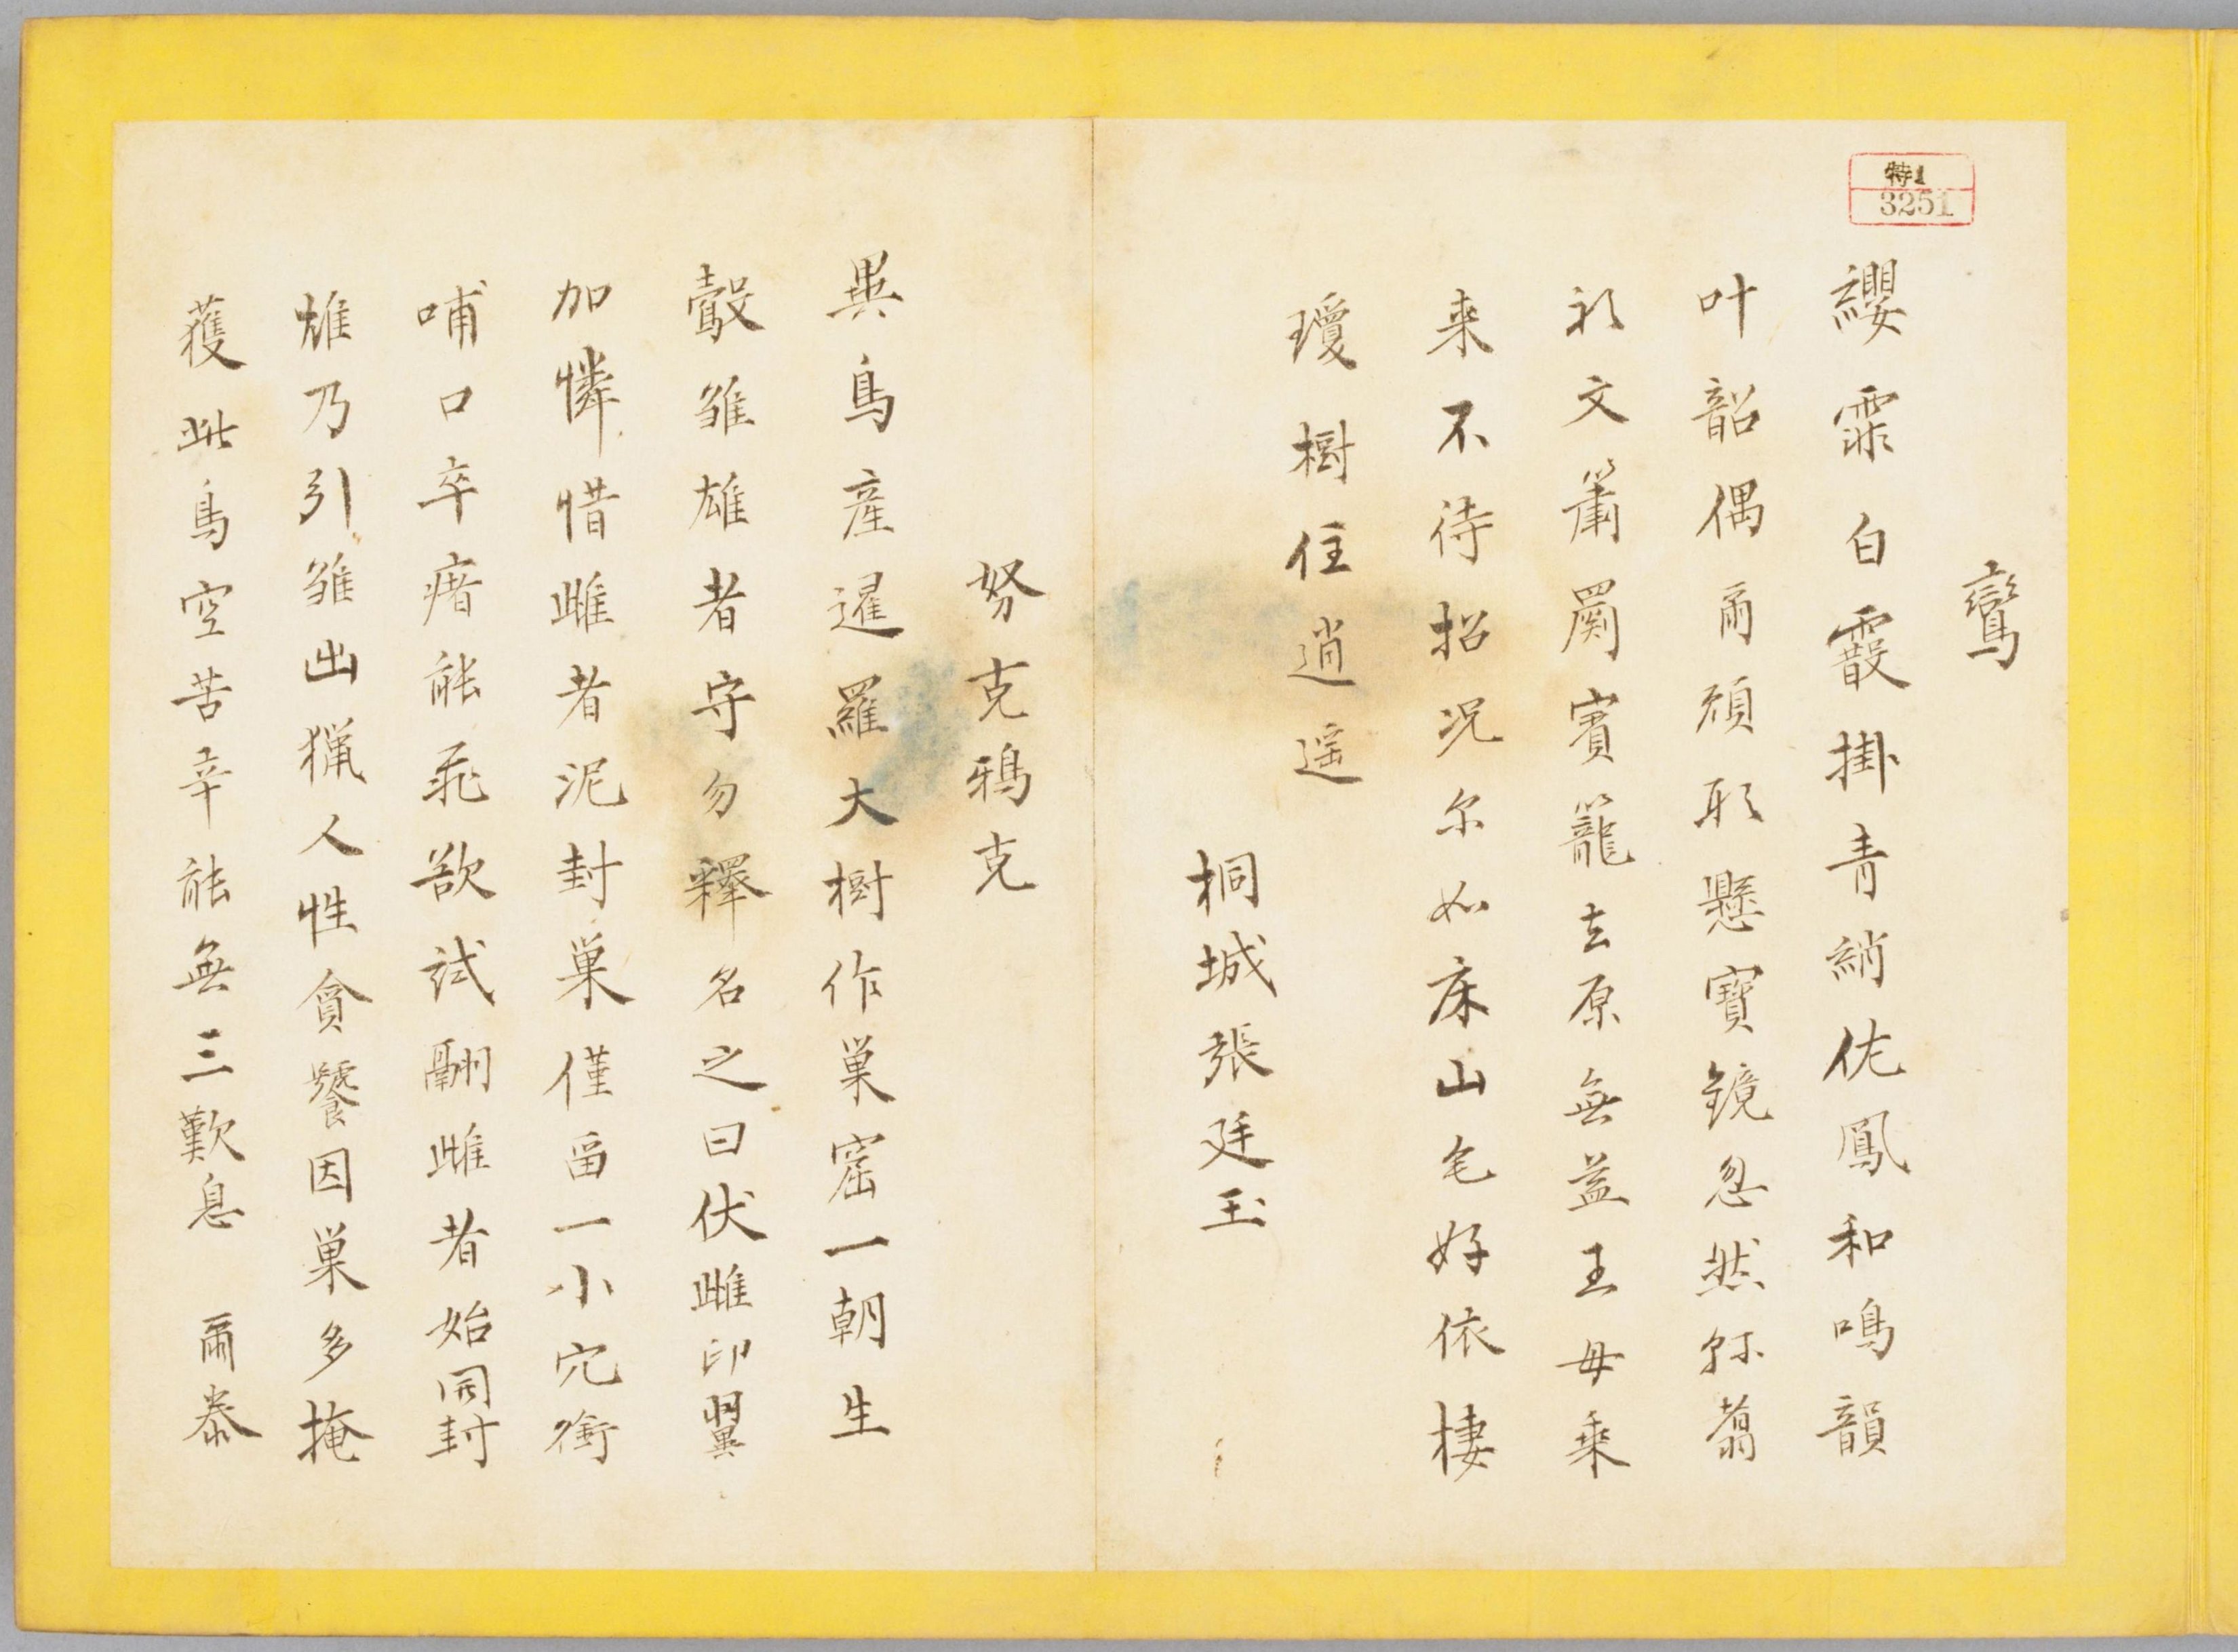 特1
3251
鸞
纓霏白霞掛青綃佐鳳和鳴韻
叶韶偶爾頑形懸寶鏡忽然弥翦
祁文簫罽賓籠去原無益王母乘
来不待招况尓如床山毛好依棲
瓊樹任逍遥
桐城張廷玉
努克鴉克
異鳥產暹羅大樹作巢窟一朝生
鷇雛雄者守勿釋名之曰伏雌卵翼
加憐惜雌者泥封巢僅畱一小穴銜
哺口卒瘏能乖欲試翮雌者始開封
雄乃引雛出獵人性貪饕因巢多掩
獲此鳥空苦辛能無三歎息 爾泰